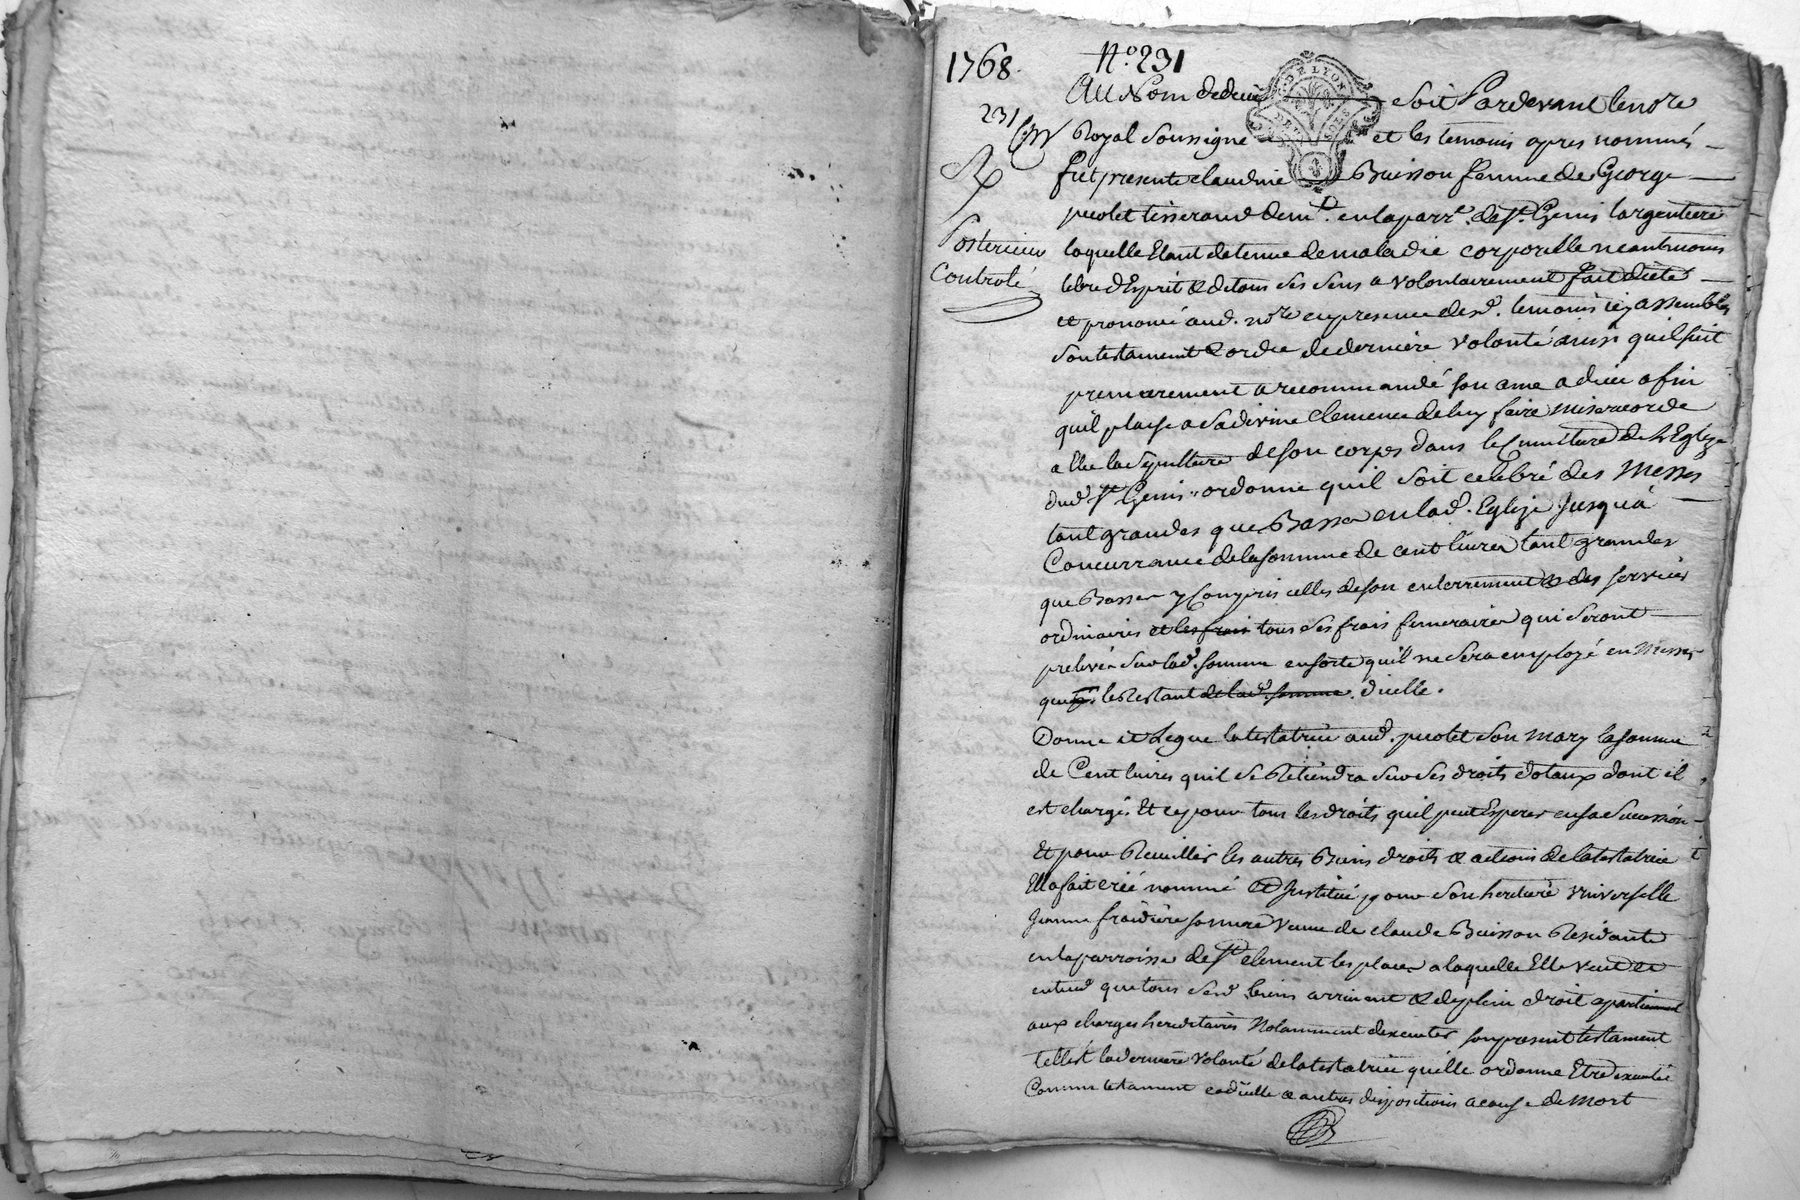 1768.
N.o 231
231
Posterieur
Controlé
DE LYON
Au Nom de dieu soit Pardevant le nore
Royal soussigné et les temoins apres nommés
fut presente claudine Buisson femme de George
puolet tisserand demt. en la parre. de St. Genis largentiere
laquelle Etant detenue de maladie corporelle neantmoins
libre d'Esprit & de tous ses sens a volontairement fait dicté
et prononcé aud. nore en presence desd. temoins icy assemblés
son testament & ordre de derniere volonté ainsi quil suit
premierement a recommandé son ame a dieu afin
quil plaise a sa divine clemence de luy faire misericorde
a Elu la sepulture de son corps dans le Cimetiere de l'Eglize
dud St Genis ordonne quil soit celebré des Messes
tant grandes que Basses en lad. Eglize Jusqu'à
Concurrance de la somme de cent livres tant grandes
que Basses y Compris celles de son enterrement & des services
ordinaires et les frais tous ses frais funeraires qui seront
prelevés sur lad. somme en sorte quil ne sera employé en Messes
que le Restant de lad. somme d'icelle.
Donne et Legue la testatrice aud. puolet son mary la somme
de Cent livres quil se Retiendra sur ses droits dotaux dont il
est chargé Et ce pour tous les droits quil peut Esperer en sa succession
Et pour Recuillir les autres Biens droits & actions de la testatrice
Elle a fait créé nommé et Institué pour son heritiere universelle
Jeanne froidiere sa mere veuve de claude Buisson Residante
en la parroisse de St clement les places a laquelle Elle veut et
entend que tous sesd. biens arrivent & de plein droit apartiennent
aux charges hereditaires Notamment d'executer son present testament
telle est la derniere volonté de la testatrice qu'elle ordonne Etre executée
Comme testament codicille & autres dispositions a cause de Mort